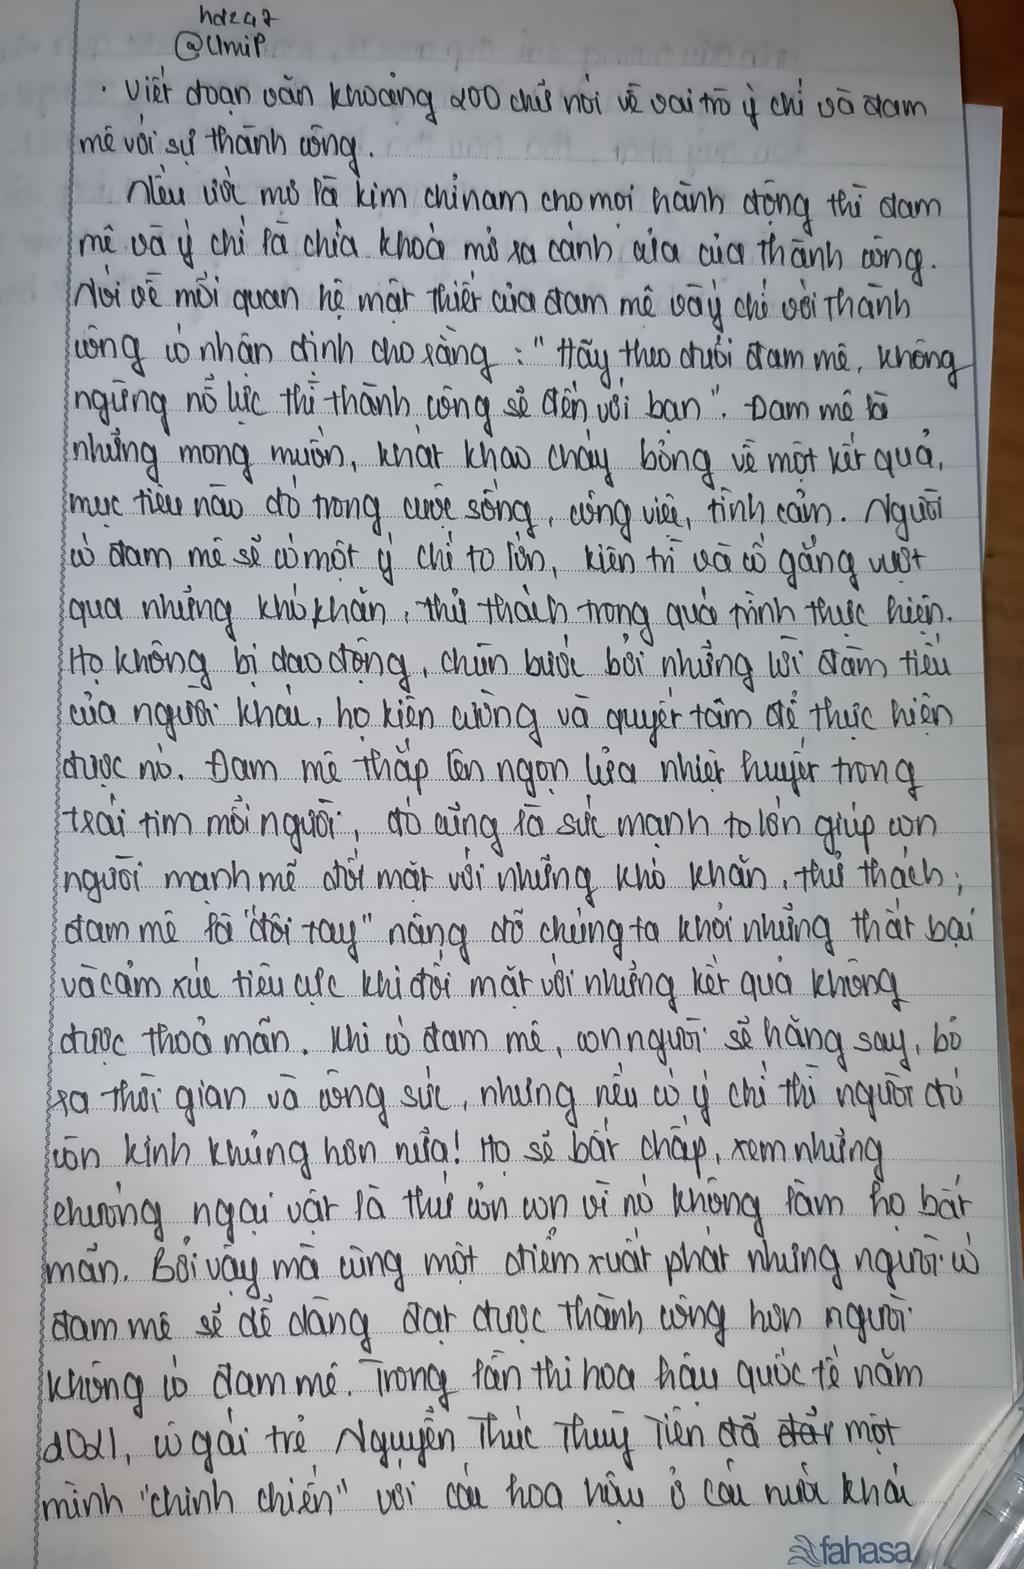 hdz47
@UmiP
. Viết đoạn văn khoảng 200 chữ nói về vai trò ý chí và đam
mê với sự thành công.
Nếu ước mơ là kim chỉ nam cho mọi hành động thì đam
mê và ý chí là chìa khoá mở ra cánh cửa của thành công.
Nói về mối quan hệ mật thiết của đam mê và ý chí với thành
công có nhận định cho rằng : " Hãy theo đuổi đam mê, không
ngừng nỗ lực thì thành công sẽ đến với bạn". Đam mê là
những mong muốn, khát khao cháy bỏng về một kết quả,
mục tiêu nào đó trong cuộc sống, công việc, tình cảm. Người
có đam mê sẽ có một ý chí to lớn, kiên trì và cố gắng vượt
qua những khó khăn, thử thách trong quá trình thực hiện.
Họ không bị dao động, chùn bước bởi những lời đàm tiếu
của người khác, họ kiên cường và quyết tâm để thực hiện
được nó. Đam mê thắp lên ngọn lửa nhiệt huyết trong
trái tim mỗi người, đó cũng là sức mạnh to lớn giúp con
người mạnh mẽ đối mặt với những khó khăn, thử thách;
đam mê là "đôi tay" nâng đỡ chúng ta khỏi những thất bại
và cảm xúc tiêu cực khi đối mặt với những kết quả không
được thoả mãn. Khi có đam mê, con người sẽ hăng say, bỏ
ra thời gian và công sức, nhưng nếu có ý chí thì người đó
còn kinh khủng hơn nữa! Họ sẽ bất chấp, xem những
chướng ngại vật là thứ cỏn con vì nó không làm họ bất
mãn. Bởi vậy mà cùng một điểm xuất phát nhưng người có
đam mê sẽ dễ dàng đạt được thành công hơn người
không có đam mê. Trong lần thi hoa hậu quốc tế năm
2021, cô gái trẻ Nguyễn Thúc Thuỳ Tiên đã đặt một
mình "chinh chiến" với các hoa hậu ở các nước khác
fahasa